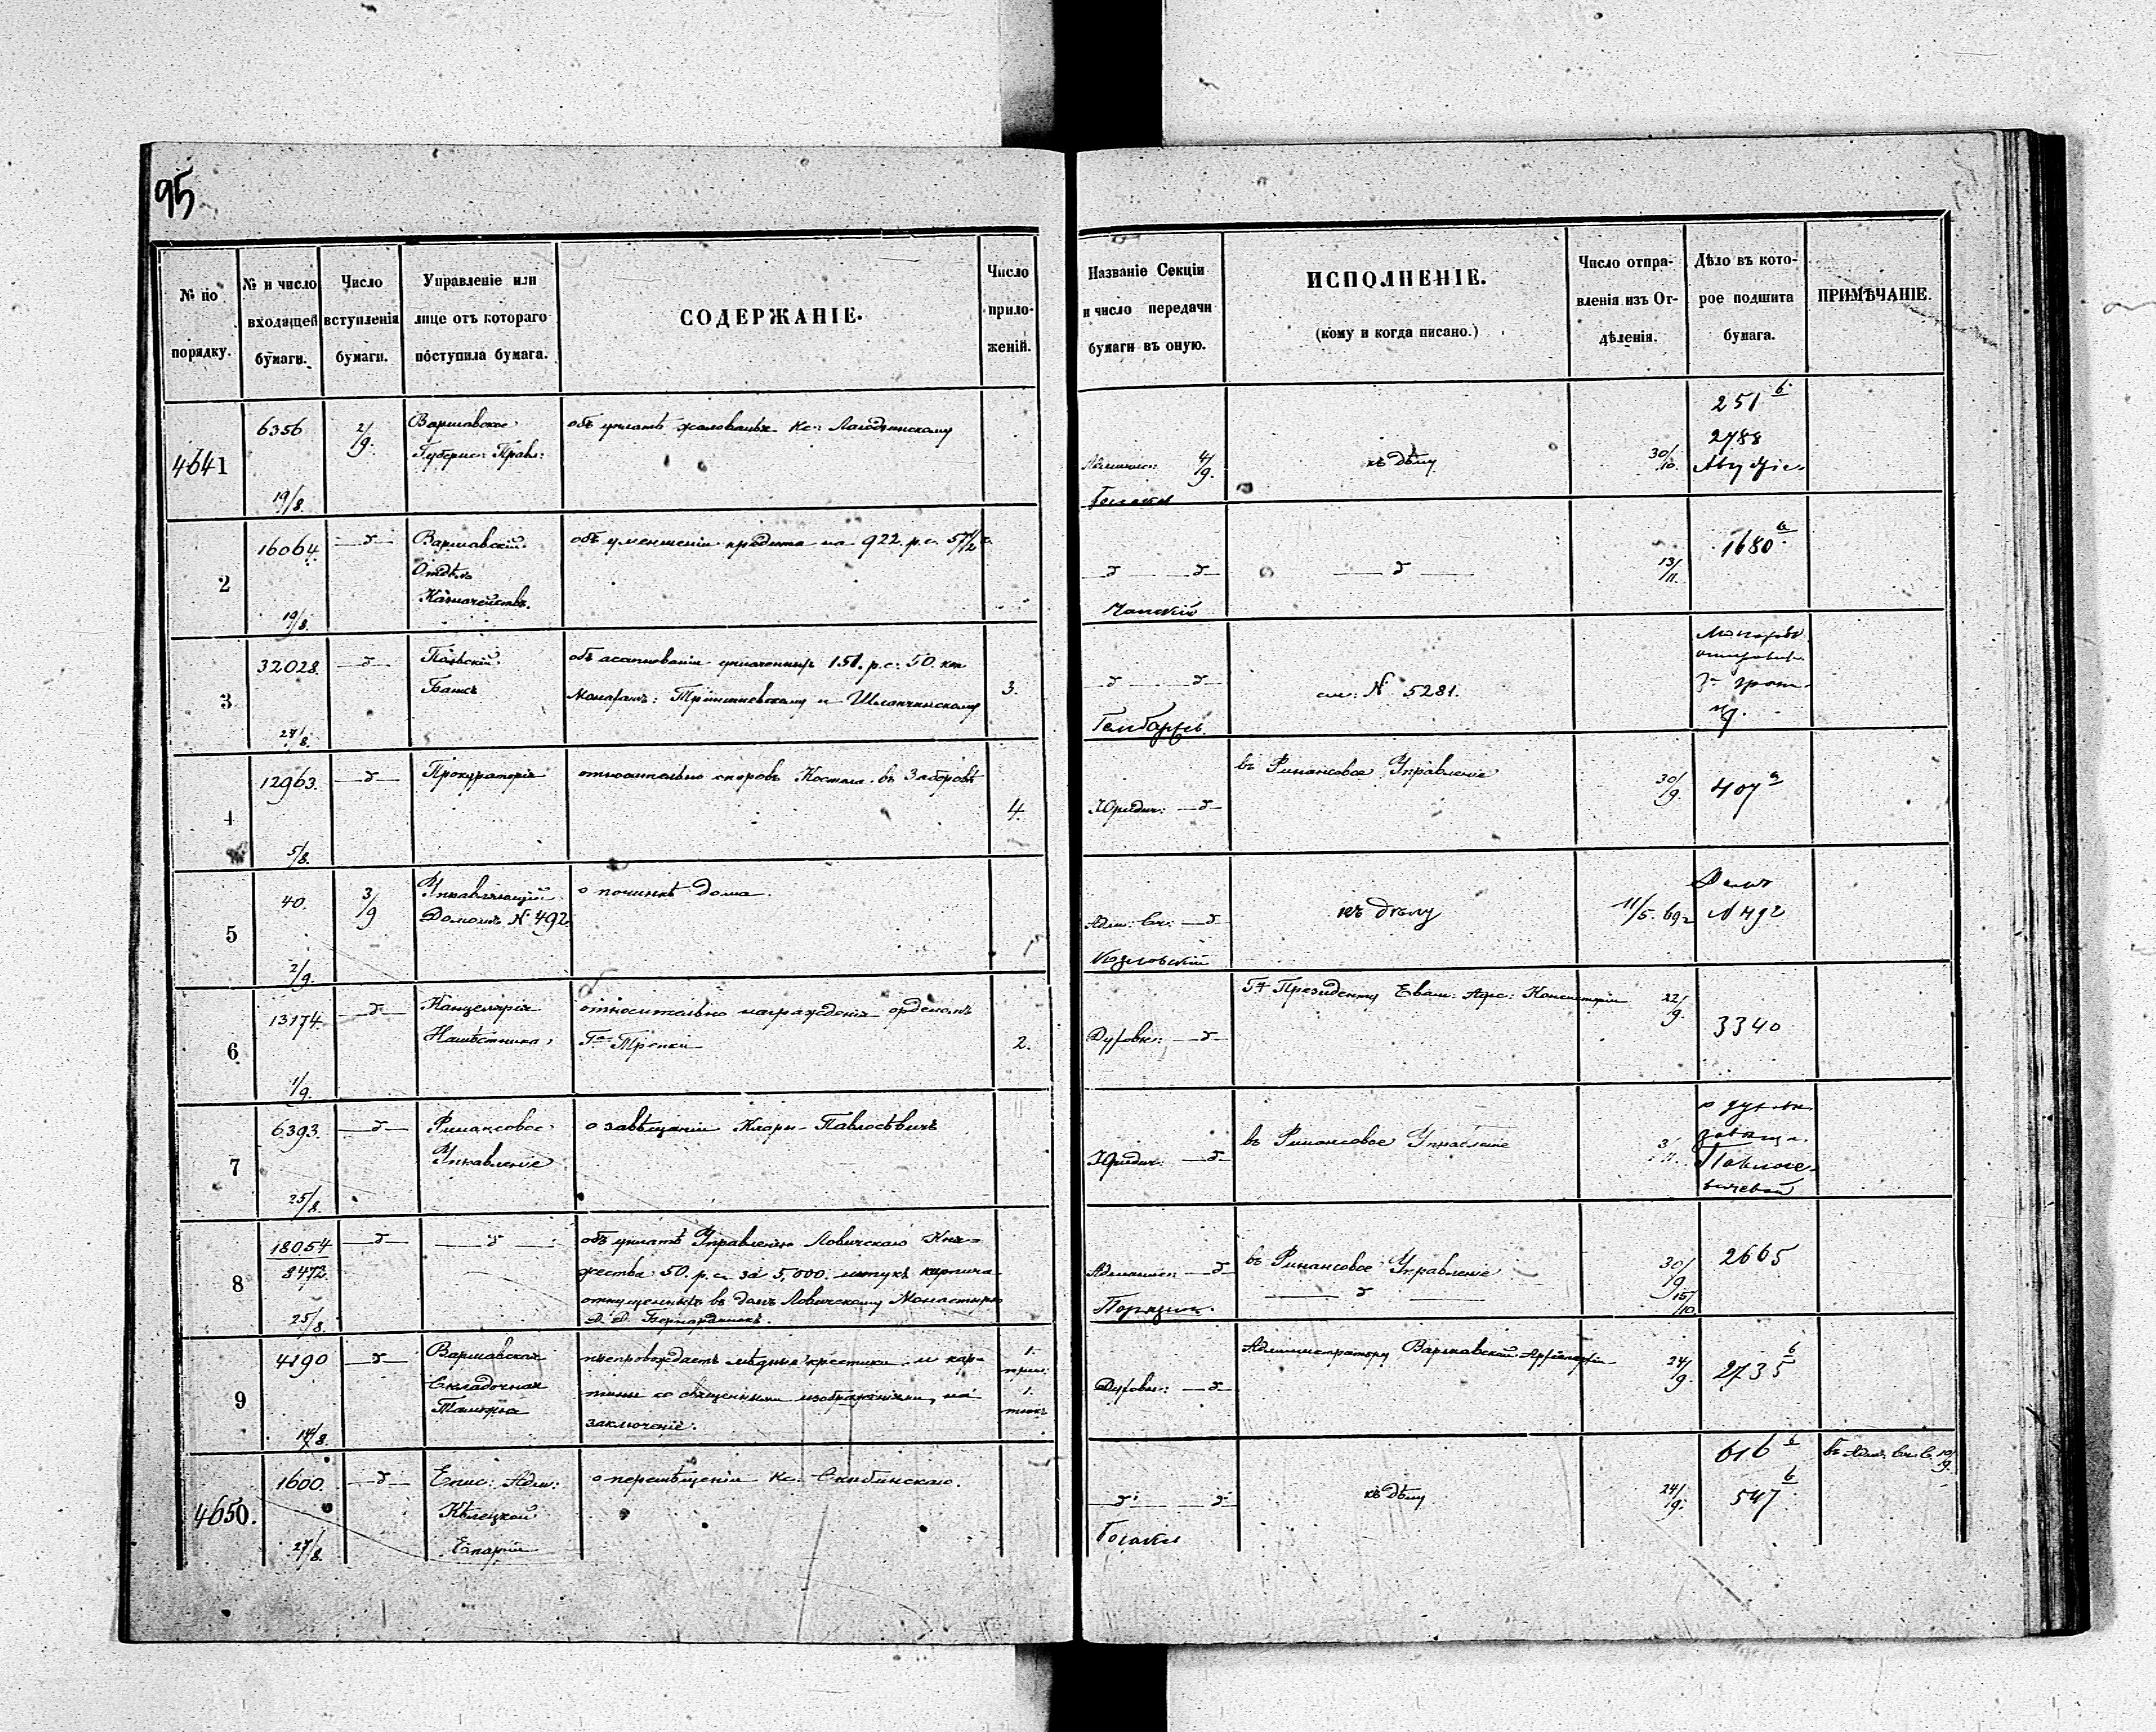 95
№ по порядку.
№ и число входящей бумаги.
Число вступленія бумаги.
Управленіе или лице отъ котораго поступила бумага.
СОДЕРЖАНІЕ.
Число прило-женій.
Названіе Секціи и число передачи бумаги въ оную.
ИСПОЛНЕНІЕ.
(кому и когда писано.)
Число отпра-вленія изъ От-дѣленія.
Дѣло въ кото-рое подшита бумага.
ПРИМѢЧАНІЕ.
4641
6356
19/8.
2/9.
Варшавское
Губернс: Правл:
объ уплатѣ жалованья Кс:
4/9.
къ дѣлу
30/10.
251 б
2788
2
16064.
19/8.
Варшавскій
Отдѣлъ
Казначейства.
объ уменшеніи кредита на 922. р. с. 57 1/2 к.
13/11.
1680
3
32028.
27/8.
Польскій
Банкъ
объ асигнованіи уплаченныхъ 151. р. с: 50. коп
Монахамъ: и
3.
см: № 5281.
4
12963.
5/8.
Прокураторія
относительно споровъ Костела въ Заборовѣ
4.
Юридич:
въ Финансовое Управленіе
30/9.
407 а
5
40.
2/9.
3/9
Управляющій
Домомъ № 492.
о починкѣ дома.
Адм: Сч:
Козловскій
къ дѣлу
11/5. 69
Домъ
№ 492
6
13174.
1/9.
Канцелярія
Намѣстника,
относительно награжденія орденомъ
2.
Духовн:
Гну Президенту Еван: Аугс: Консисторіи
22/9.
3340
7
6393.
25/8.
Финансовое
Управленіе
о завѣщаніи Клары Павлосѣвичъ
Юридич:
въ Финансовое Управленіе
3/11.
о духовн.
завѣщ.
Павлосе-
вичевой
8
18054
3472.
25/8.
объ уплатѣ Управленію Ловичскаго Кня-
жества 50. р. с. за 5,000. штукъ кирпича
отпущенныхъ въ домъ Ловичскому Монастырю
Бернардинокъ.
въ Финансовое Управленіе
30/9
15/10
2665
9
4190
14/8.
Варшавская
Складочная
Таможня
препровождаетъ мѣдные крестики и кар-
тины со священными изображеніями, на
заключеніе.
1.
1.
Духовн:
Администратору Варшавской Архіепархіи
24/9.
2735 б
4650.
1600.
27/8.
Епис: Адм:
Кѣлецкой
Епархіи
о перемѣщеніи Кс: Скибинскаго.
къ дѣлу
24/9.
616 б
547 б
въ Адм. Сч. С. 10/9.